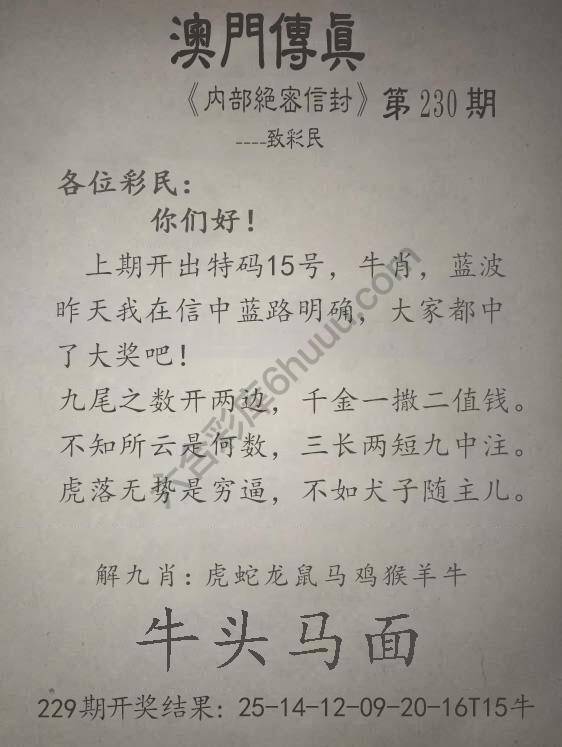 澳門傳眞
《内部絕密信封》第230期
----致彩民
各位彩民：
你们好！
上期开出特码15号，牛肖，蓝波
昨天我在信中蓝路明确，大家都中
了大奖吧！
九尾之数开两边，千金一撒二值钱。
不知所云是何数，三长两短九中注。
虎落无势是穷逼，不如犬子随主儿。
六合彩库6huuu.com
解九肖：虎蛇龙鼠马鸡猴羊牛
牛头马面
229期开奖结果：25-14-12-09-20-16T15牛